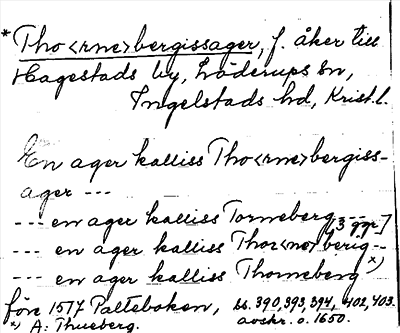 * Tho<rne>bergissager, f. åker till
Hagestads by, Löderups sn,
Ingelstads hd, Krist. l.
En ager kalliss Tho<rne>bergiss-
ager ---
--- en ager kalliss Torneberg --- [3 ggr]
--- en ager kalliss Thor<ne>berig --
--- en ager kalliss Thorneberg x)
före 1577 Palteboken, ss. 390, 393, 394, 402, 403.
x) A: Thueberg. avskr. o. 1650.